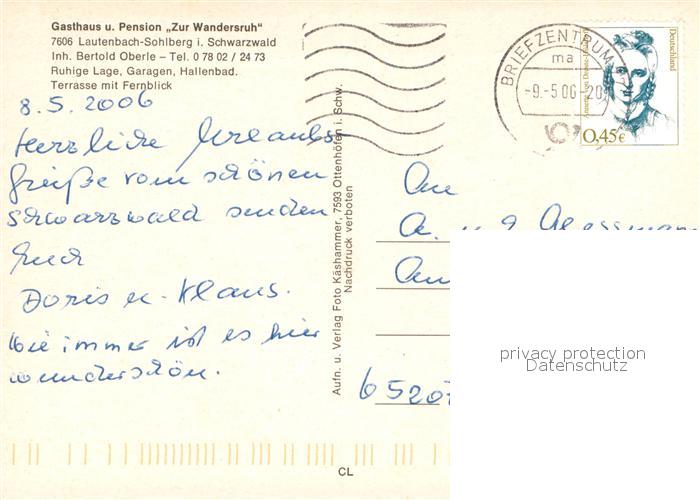 Gasthaus u. Pension „Zur Wandersruh"
7606 Lautenbach-Sohlberg i. Schwarzwald
Inh. Bertold Oberle – Tel. 0 78 02 / 24 73
Ruhige Lage, Garagen, Hallenbad.
Terrasse mit Fernblick
8.5.2006
Herzliche Urlaubs-
grüße vom schönen
Schwarzwald senden
Euch
Doris u. Klaus.
Wie immer ist es hier
wunderschön.
Aufn. u. Verlag Foto Käshammer, 7593 Ottenhöfen i. Schw.
Nachdruck verboten
CL
BRIEFZENTRUM
ma
-9.-5.06-20
Deutschland
0,45€
An
A. u.
An
65207
privacy protection
Datenschutz